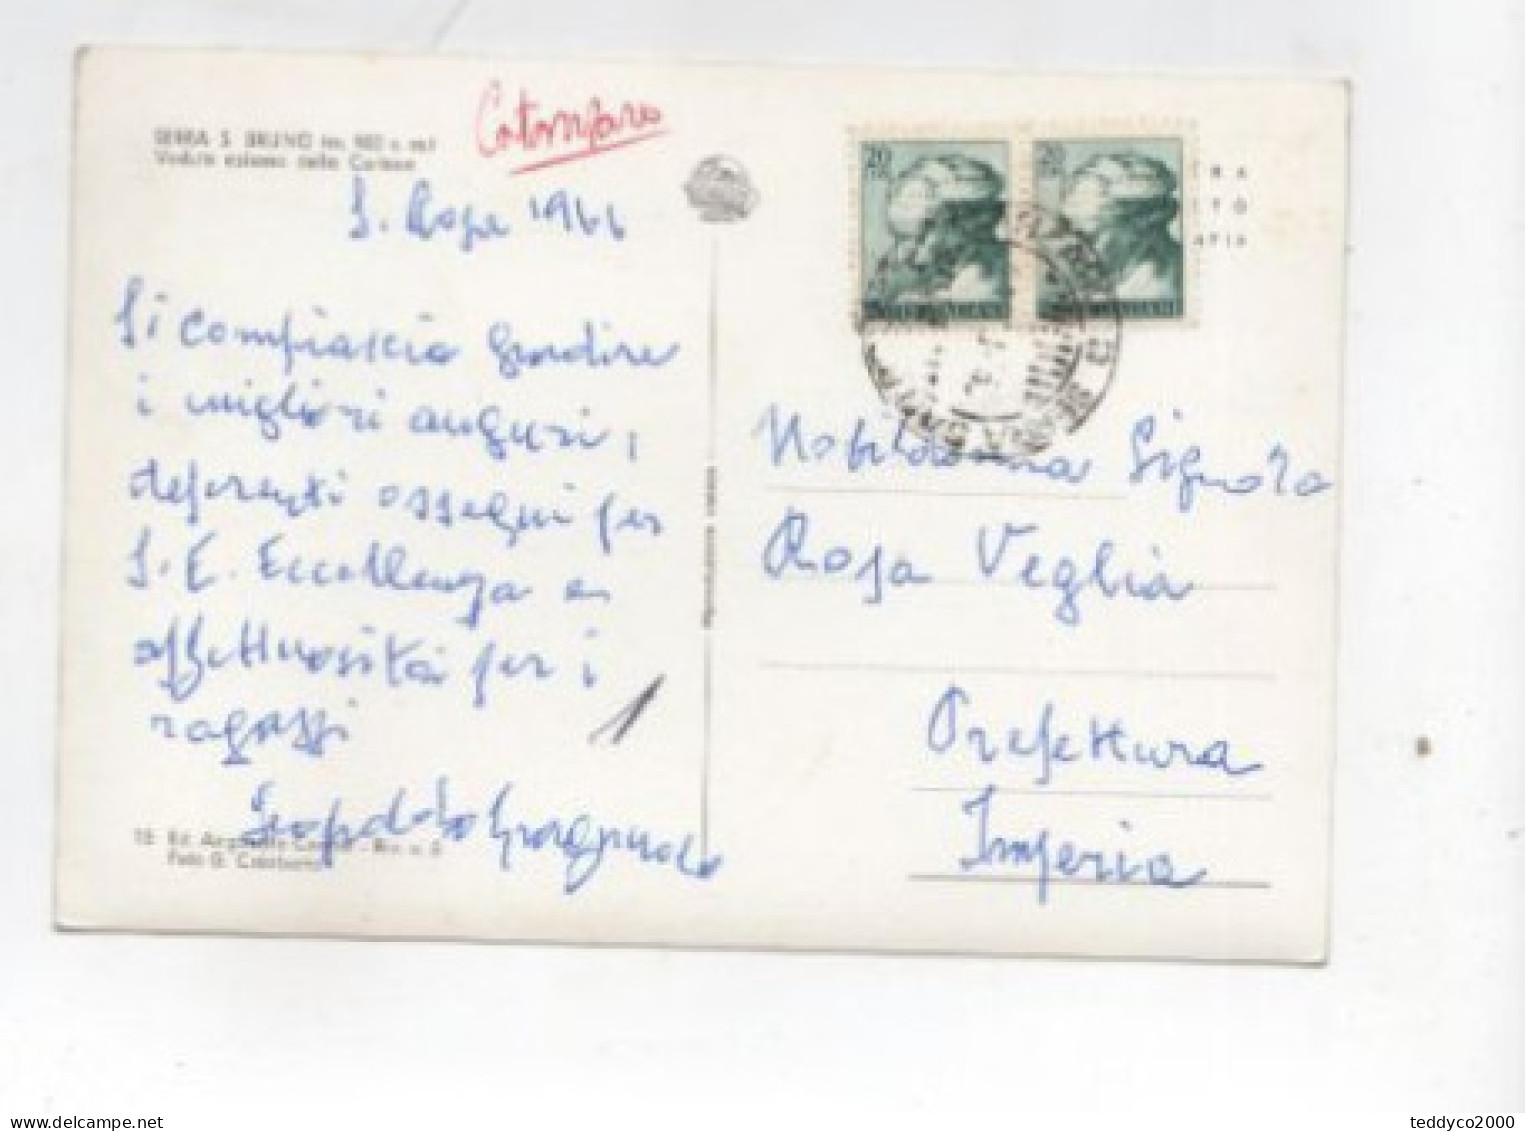 Catanzaro
SERRA S. BRUNO
Veduta esterna della Certosa
S. Rosa 1966
Si compiaccia gradire
i migliori auguri,
deferenti ossequi per
S. E. Eccellenza e
affettuosità per i
ragazzi
Leopoldo
20
20
RA
ITO
AFIA
Nobildonna Signora
Rosa Veglia
Prefettura
Imperia
Riproduzione vietata
1
15 Ed.
Foto G.
teddyco2000